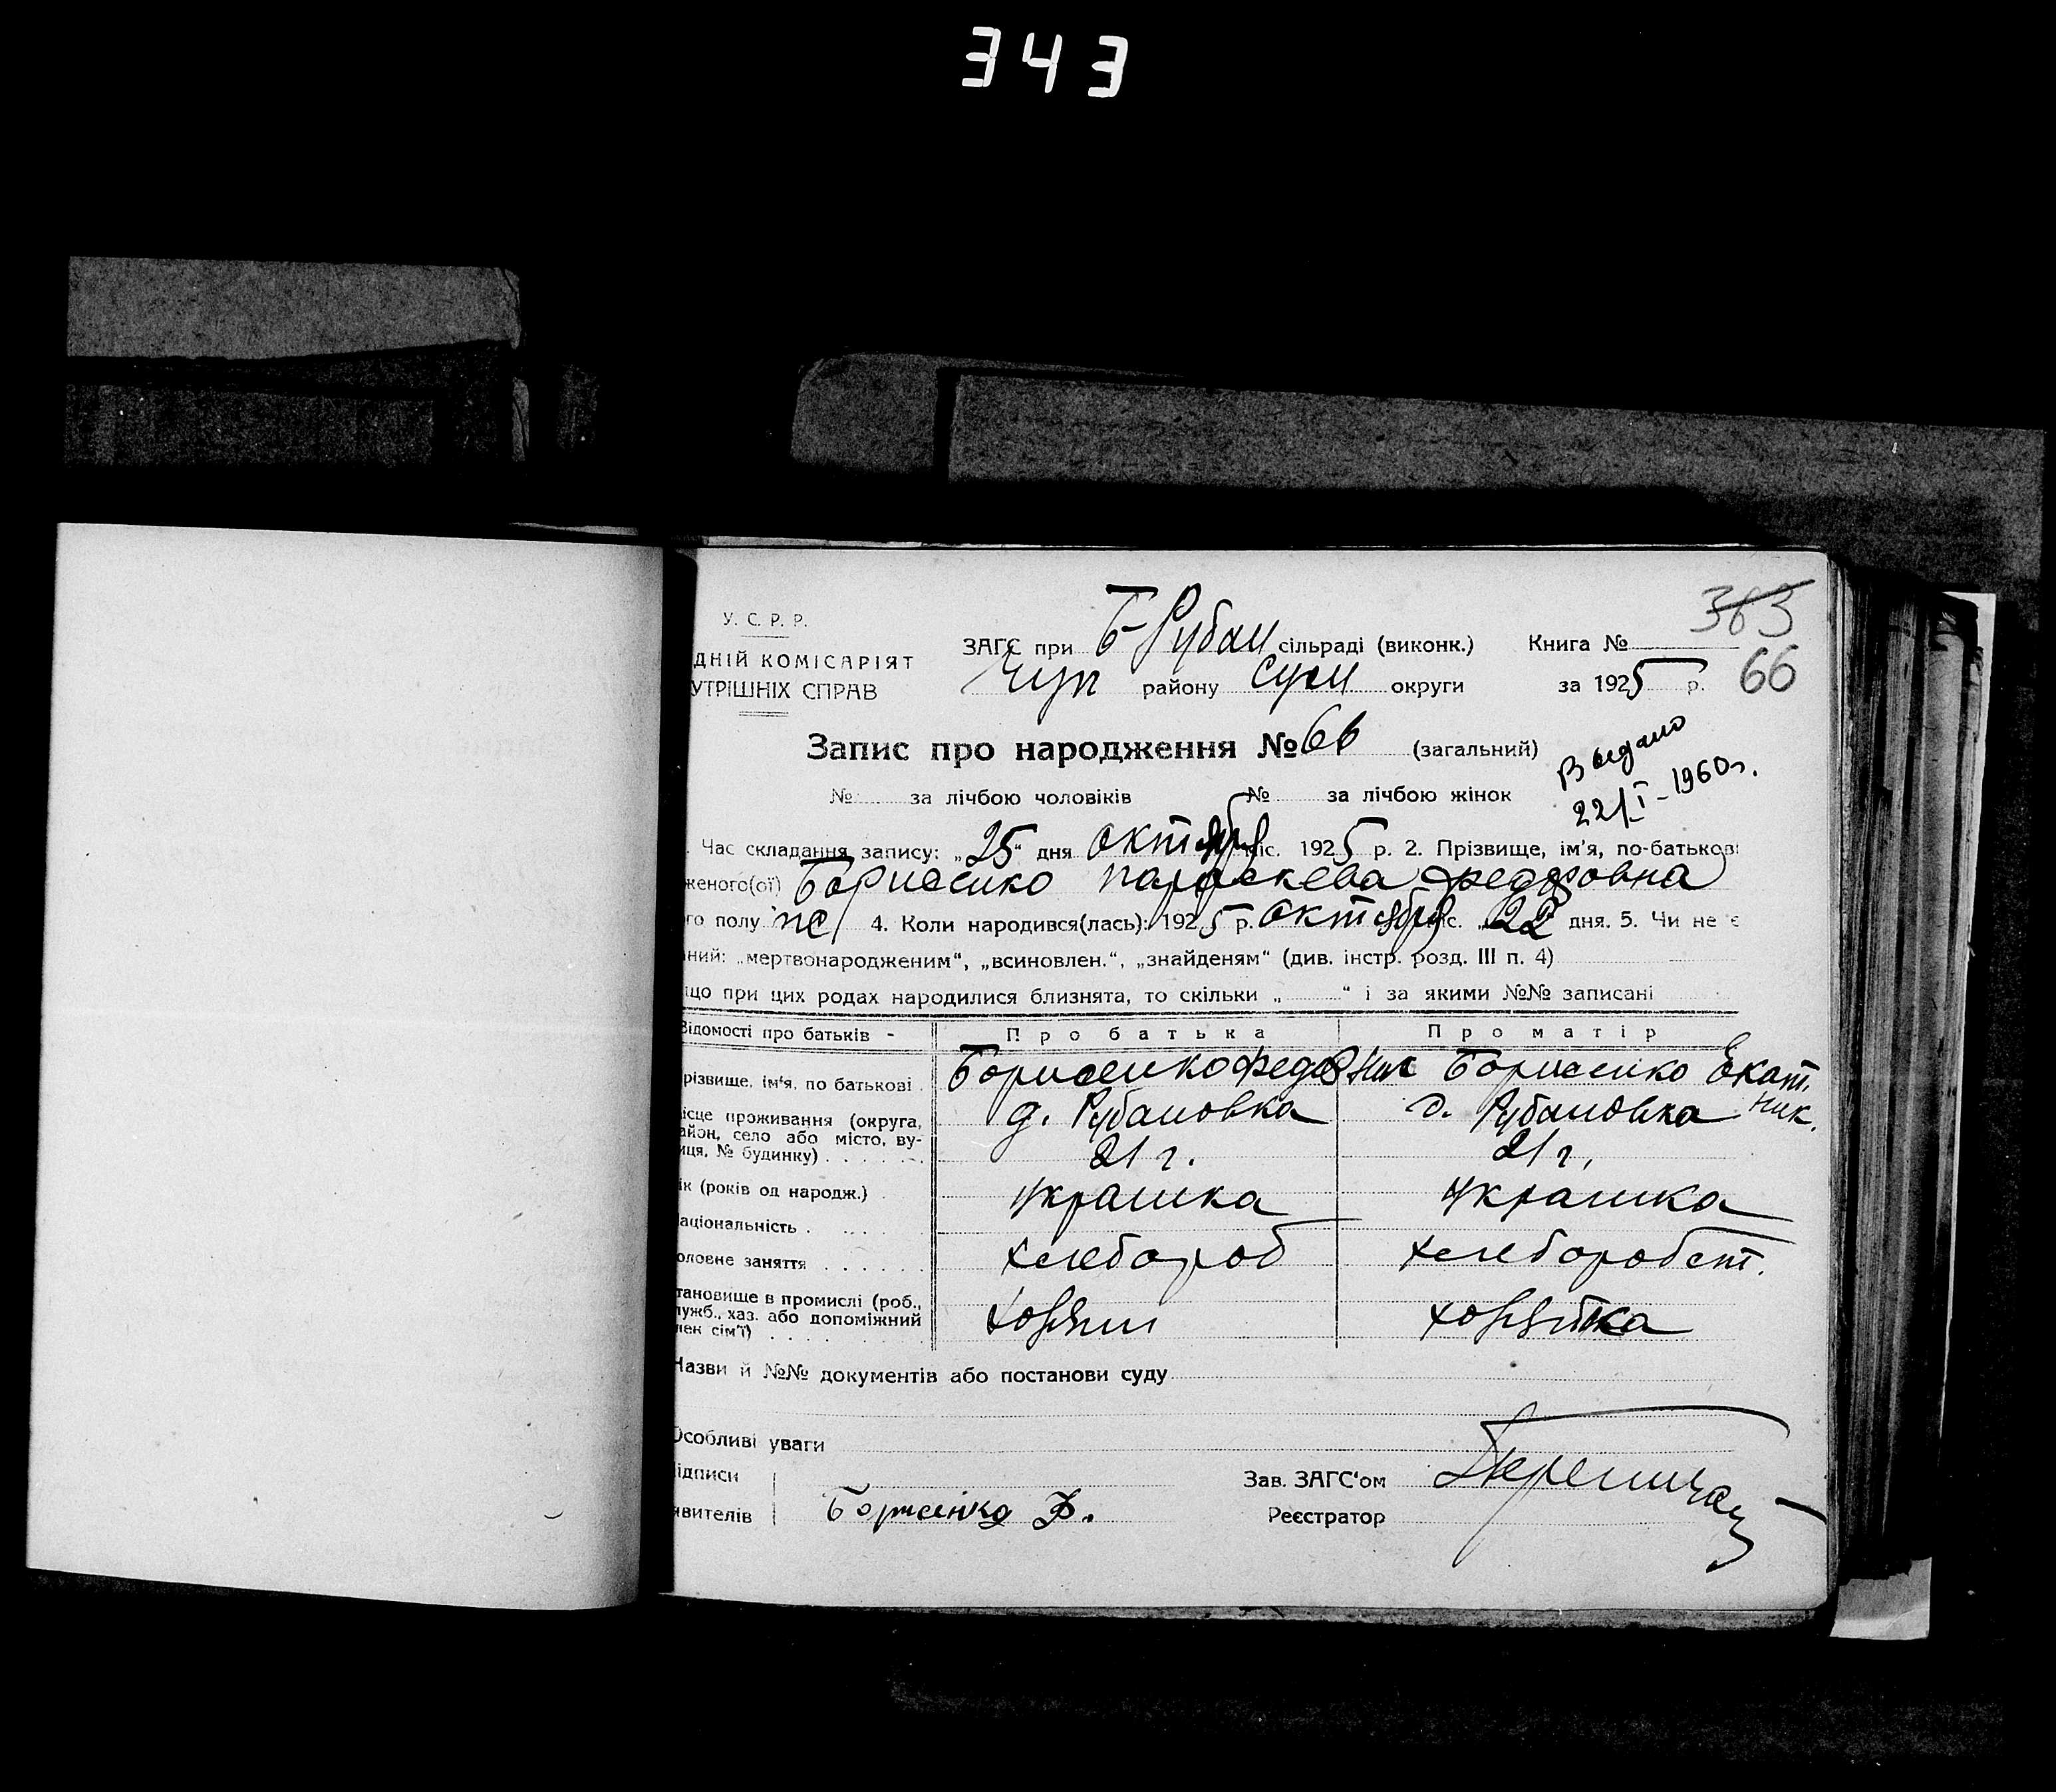 343
383
У. С. Р. Р.
ЗАГС при Б-Рубан сільраді (виконк.) Книга №
ДНІЙ КОМІСАРІЯТ
УТРІШНІХ СПРАВ
району Сум округи за 1925 р. 66
Запис про народження № 66 (загальний)
Выдано
22/I-1960г.
№ за лічбою чоловіків № за лічбою жінок
Час складання запису: „25“ дня октября міс. 1925 р. 2. Прізвище, ім'я, по-батькові
женого(ої) Борисенко Параскева Федоровна
го полу 4. Коли народився(лась): 1925 р. октября міс. „22 дня. 5. Чи не є
аний: „мертвонародженим“, „всиновлен.“, „знайденям“ (див. інстр. розд. III п. 4)
що при цих родах народилися близнята, то скільки „ “ і за якими №№ записані
Відомості про батьків - Про батька Про матір
різвище, ім'я, по батькові Борисенко Федор Ник Борисенко Екат. Ник.
ісце проживання (округа, д. Рубановка д. Рубановка
айон, село або місто, ву-
иця, № будинку) 21 г. 21 г.
ік (років од народж.) украинка украинка
аціональність
оловне заняття хлебороб хлебороб ст.
тановище в промислі (роб.,
лужб., хаз. або допоміжний хозяин хозяйка
лен сім'ї)
Назви й №№ документів або постанови суду
Особливі уваги
ідписи Зав. ЗАГС'ом
явителів Борисенко Ф. Реєстратор